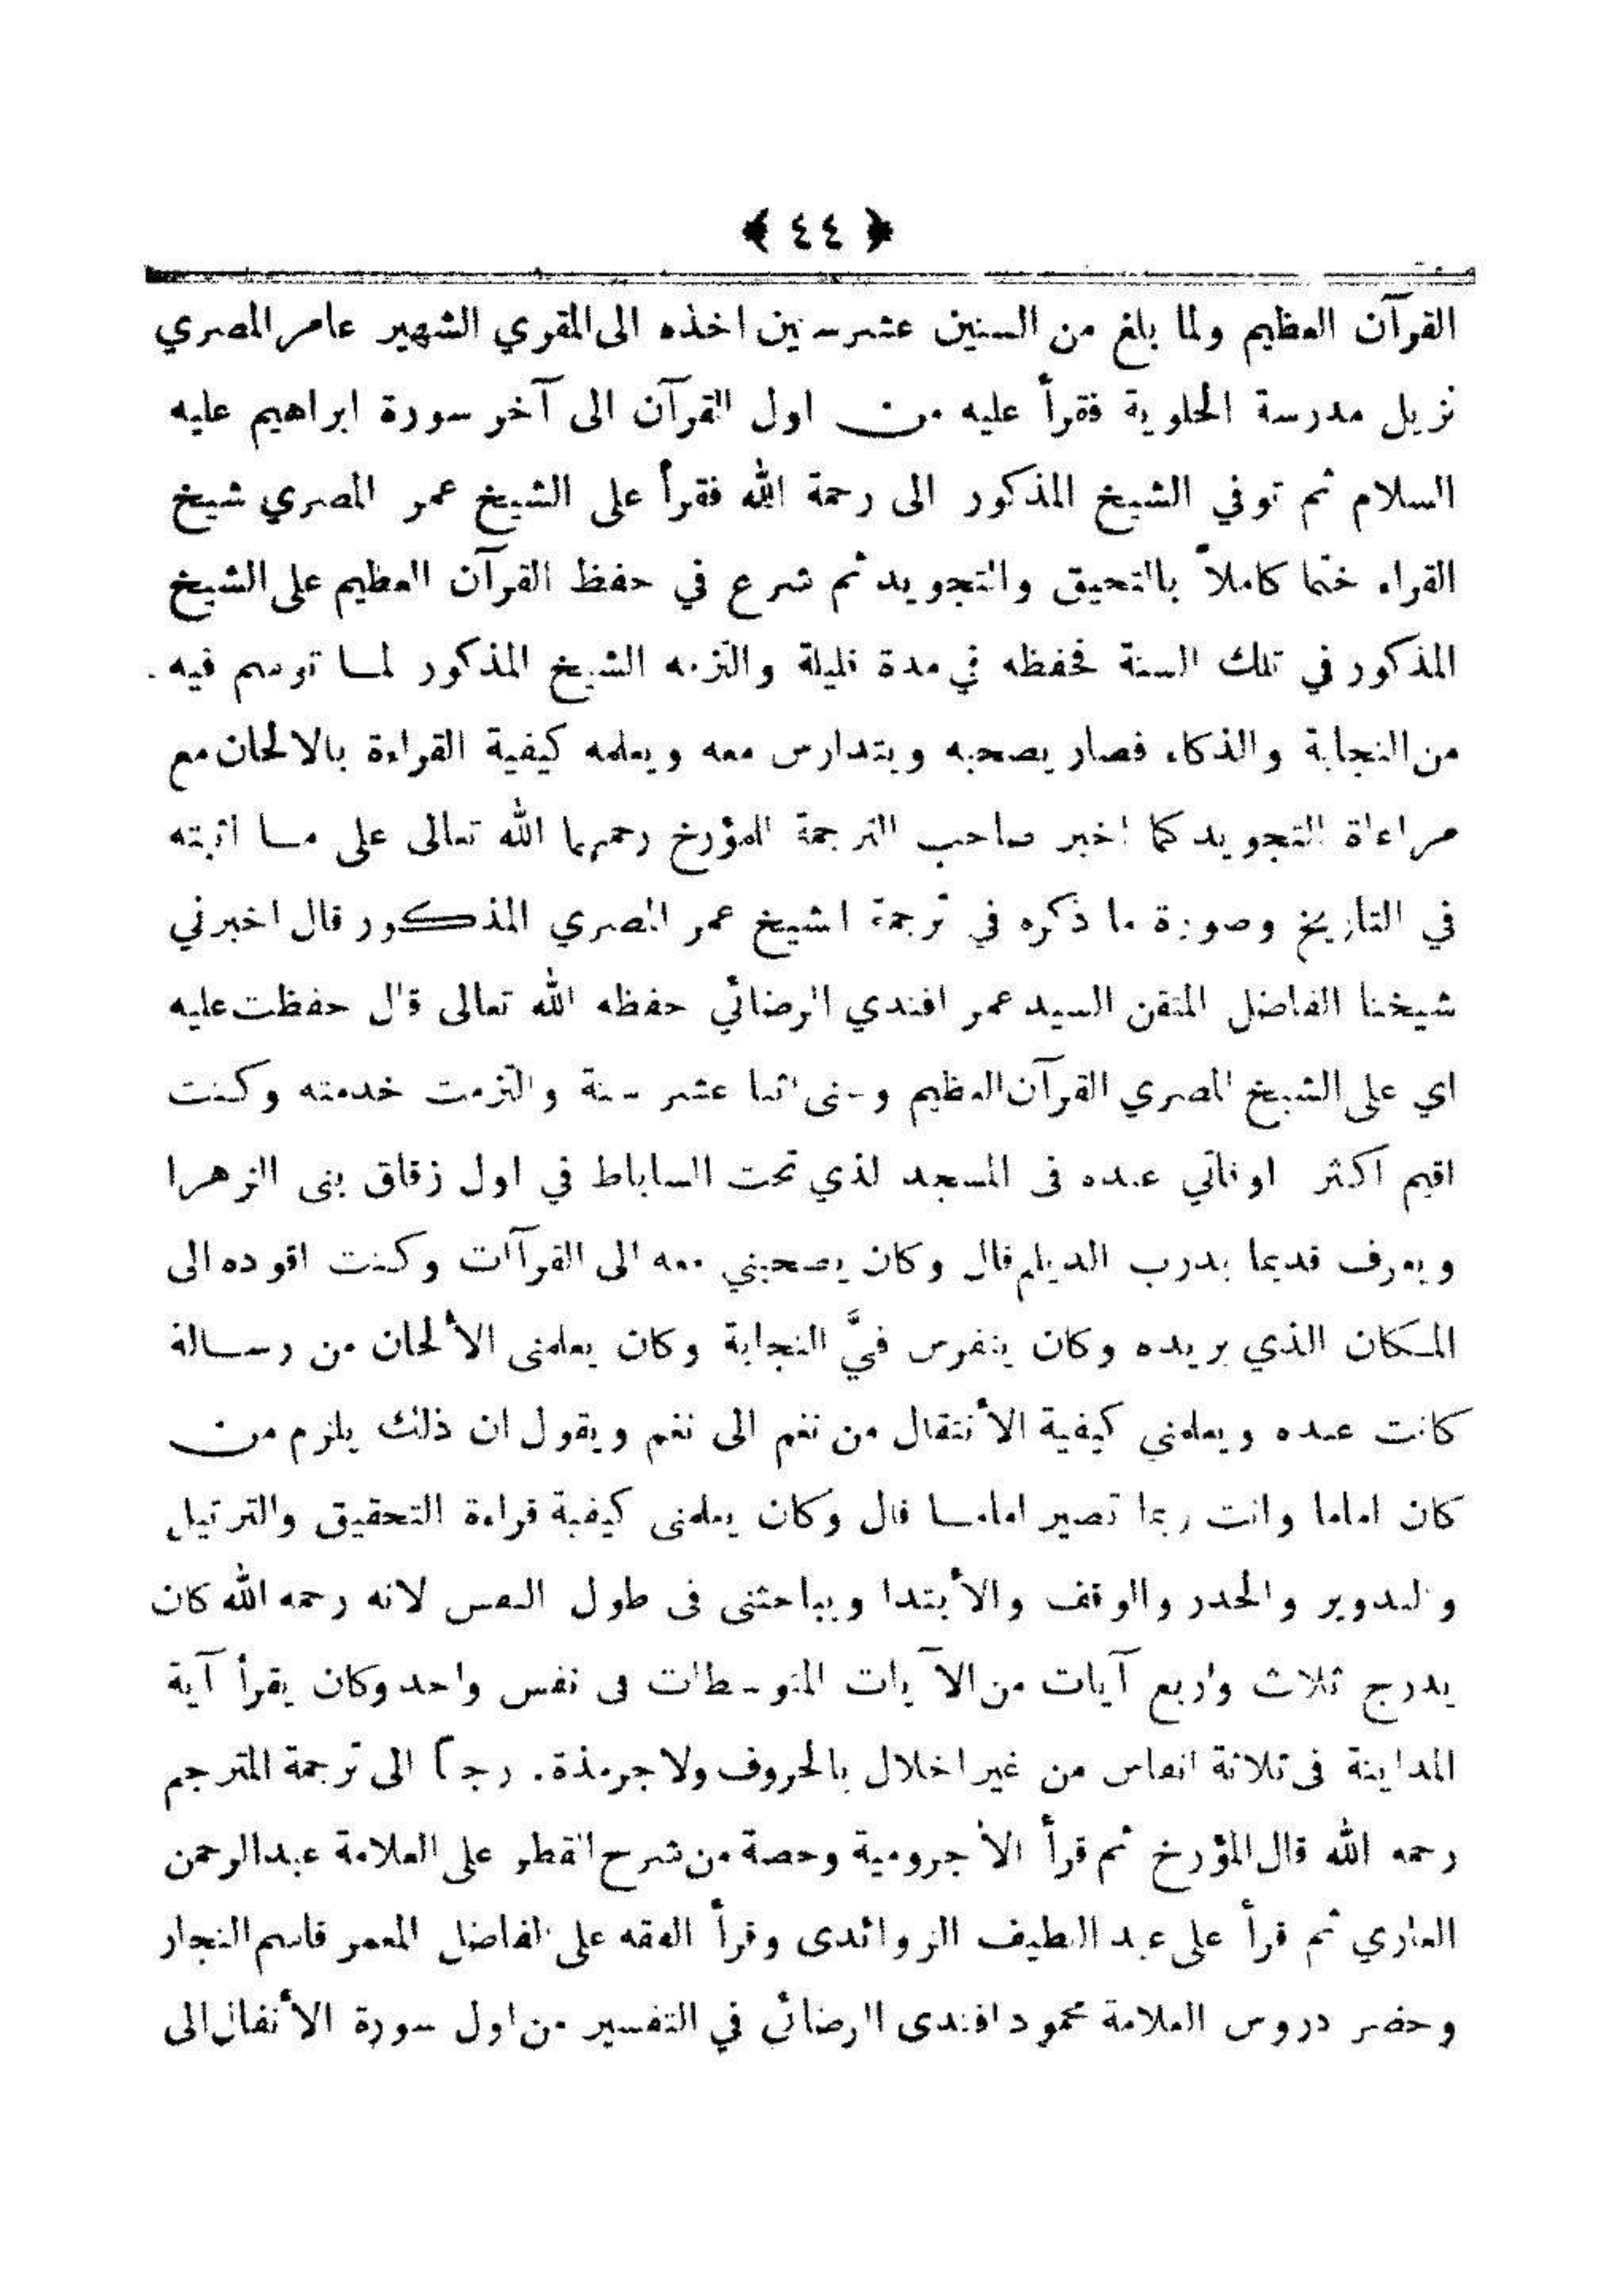 ﴿ ٤٤ ﴾
القرآن العظيم ولما بلغ من السنين عشر سنين اخذه الى المقري الشهير عامر المصري
نزيل مدرسة الحلوية فقرأ عليه من اول القرآن الى آخر سورة ابراهيم عليه
السلام ثم توفي الشيخ المذكور الى رحمة الله فقرأ على الشيخ عمر المصري شيخ
القراء ختما كاملاً بالتحيق والتجويد ثم شرع في حفظ القرآن العظيم على الشيخ
المذكور في تلك السنة فحفظه في مدة قليلة والتزمه الشيخ المذكور لما توسم فيه
من النجابة والذكاء فصار يصحبه ويتدارس معه ويعلمه كيفية القراءة بالالحان مع
مراعاة التجويد كما اخبر صاحب الترجمة المؤرخ رحمهما الله تعالى على ما اثبته
في التاريخ وصورة ما ذكره في ترجمة الشيخ عمر المصري المذكور قال اخبرني
شيخنا الفاضل المتقن السيد عمر افندي الرضائي حفظه الله تعالى قال حفظت عليه
اي على الشيخ المصري القرآن العظيم وسنى اثنا عشر سنة والتزمت خدمته وكنت
اقيم اكثر اوقاتي عنده فى المسجد الذي تحت الساباط في اول زقاق بنى الزهرا
ويعرف قديما بدرب الديلم قال وكان يصحبني معه الى القراآت وكنت اقوده الى
المكان الذي يريده وكان يتفرس فيَّ النجابة وكان يعلمنى الألحان من رسالة
كانت عنده ويعلمني كيفية الأنتقال من نغم الى نغم ويقول ان ذلك يلزم من
كان اماما وانت ربما تصير اماما قال وكان يعلمنى كيفية قراءة التحقيق والترتيل
والتدوير والحدر والوقف والأبتدا ويباحثنى فى طول النفس لانه رحمه الله كان
يدرج ثلاث واربع آيات من الآيات المتوسطات فى نفس واحد وكان يقرأ آية
المداينة فى ثلاثة انفاس من غير اخلال بالحروف ولا جرمذة. رجع الى ترجمة المترجم
رحمه الله قال المؤرخ ثم قرأ الأجرومية وحصة من شرح القطر على العلامة عبدالرحمن
العاري ثم قرأ على عبد اللطيف الزوائدى وقرأ الفقه على الفاضل المعمر قاسم النجار
وحضر دروس العلامة محمود افندى الرضائى في التفسير من اول سورة الأنفال الى